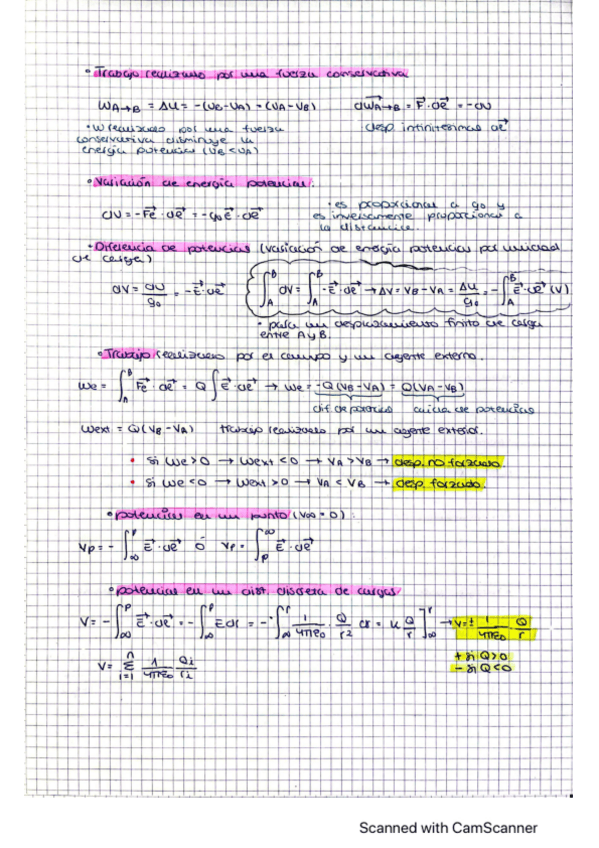 • Trabajo realizado por una fuerza conservativa
W_A→B = ΔU = -(U_B - U_A) = (U_A - U_B)    dW_A→B = F⃗ · dℓ⃗ = -dU
• W realizado por una fuerza    desp. infinitesimas dℓ⃗
conservativa disminuye la
energía potencial (U_B < U_A)
• Variación de energía potencial:
dU = -F⃗e · dℓ⃗ = -q₀E⃗ · dℓ⃗    • es proporcional a q₀ y
es inversamente proporcional a
la distancia.
• Diferencia de potencial (variación de energía potencial por unidad
de carga)
dV = dU/q₀ = -E⃗ · dℓ⃗    ∫_A^B dV = ∫_A^B -E⃗ · dℓ⃗ → ΔV = V_B - V_A = ΔU/q₀ = -∫_A^B E⃗ · dℓ⃗ (V)
• para un desplazamiento finito de carga
entre A y B.
• Trabajo realizado por el campo y un agente externo.
We = ∫_A^B F⃗e · dℓ⃗ = Q ∫ E⃗ · dℓ⃗ → We = -Q(V_B - V_A) = Q(V_A - V_B)
dif de potencial    caída de potencial
Wext = Q(V_B - V_A)    trabajo realizado por un agente exterior.
• Si We > 0 → Wext < 0 → V_A > V_B → desp. no forzado.
• Si We < 0 → Wext > 0 → V_A < V_B → desp. forzado.
• potencial en un punto (V∞ = 0):
Vp = -∫_∞^P E⃗ · dℓ⃗ ó Vp = ∫_P^∞ E⃗ · dℓ⃗
• potencial en un dist. discreta de cargas
V = -∫_∞^P E⃗ · dℓ⃗ = -∫_∞^r E dr = -∫_∞^r 1/4πε₀ · Q/r² dr = k Q/r ]_∞^r → V = ± 1/4πε₀ Q/r
+ si Q>0
V = Σ_{i=1}^n 1/4πε₀ Qi/ri    - si Q<0
Scanned with CamScanner